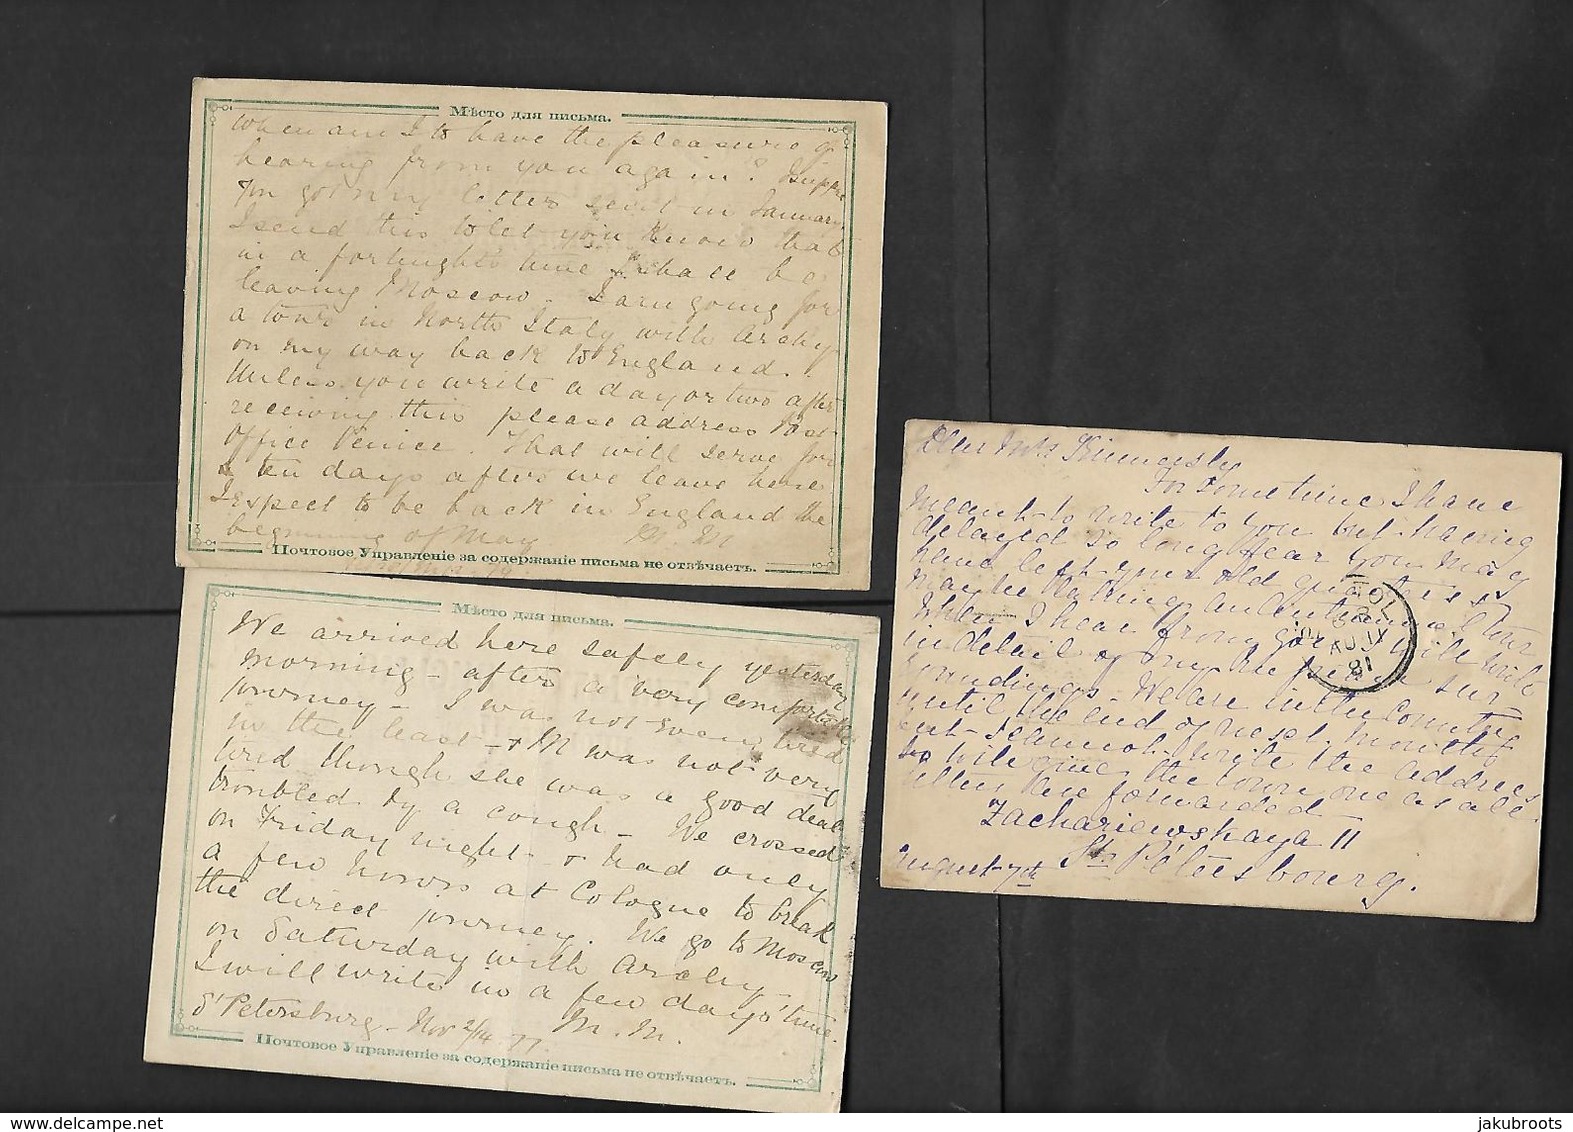 Мѣсто для письма.
When am I to have the pleasure of
hearing from you again? I suppose
you got my letter sent in January
I send this to let you know that
in a fortnight's time I shall be
leaving Moscow. I am going for
a tour in North Italy with Archy
on my way back to England.
Unless you write a day or two after
receiving this please address Post
Office Venice. That will serve for
ten days after we leave here
I expect to be back in England the
beginning of May M. M
Почтовое Управленіе за содержаніе письма не отвѣчаетъ.
Мѣсто для письма.
We arrived here safely yesterday
morning - after a very comfortable
journey - I was not even tired
in the least - & M was not very
tired though she was a good deal
troubled by a cough - We crossed
on Friday night - & had only
a few hours at Cologne to break
the direct journey. We go to Moscow
on Saturday with Archy -
I will write in a few days' time.
St Petersburg - Nov 2/14 77. M. M.
Почтовое Управленіе за содержаніе письма не отвѣчаетъ.
Dear Mrs
For some time I have
meant to write to you but having
delayed so long fear you may
have left your old quarters or
may be taking an autumnal tour
When I hear from you I will write
in detail of my present sur=
roundings - We are in the country
until the end of next month
but I cannot write the address
so will give the town one as all
letters are forwarded
Zachariewskaya 11
St Petersbourg.
August 7th
AU
81
jakubroots